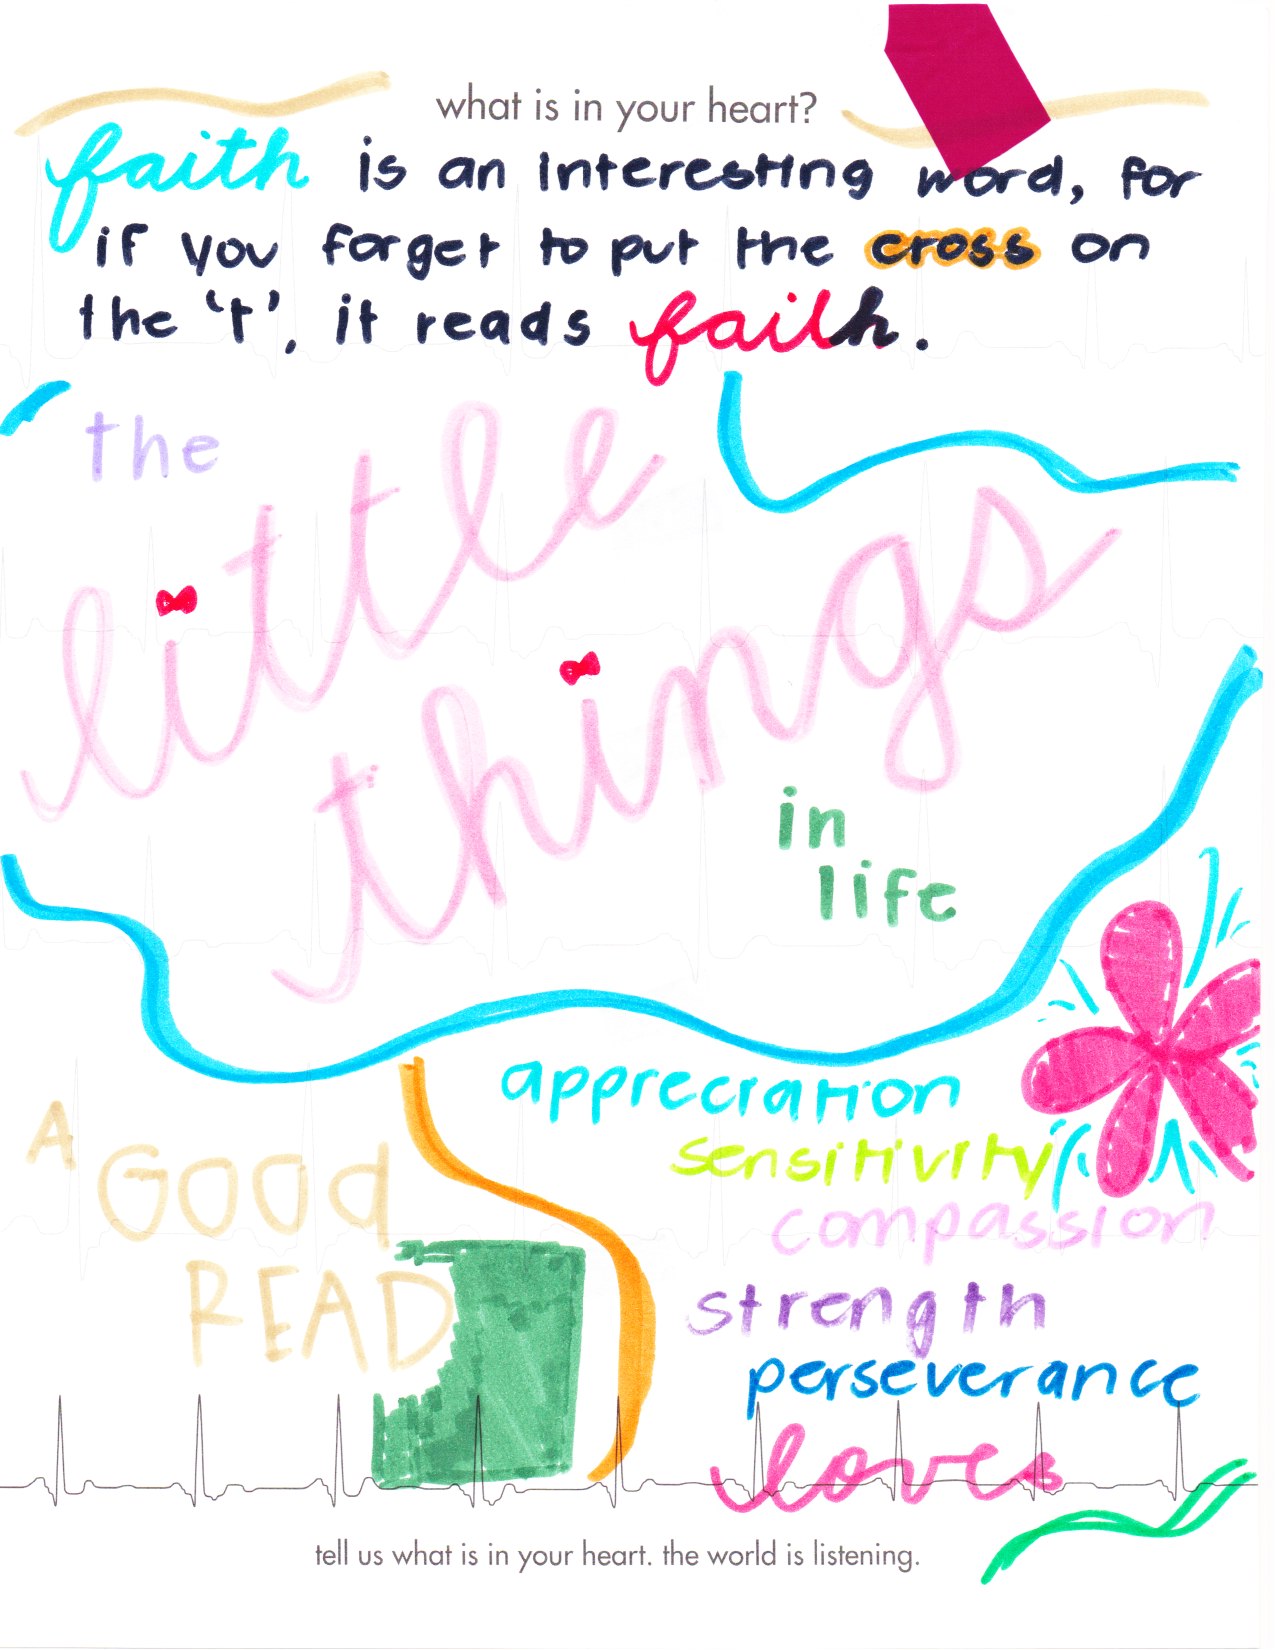 what is in your heart?
faith is an interesting word, for
if you forget to put the cross on
the 't', it reads failh.
the
little
things
in
life
appreciation
sensitivity
compassion
strength
perseverance
loves
A
GOOd
READ
tell us what is in your heart. the world is listening.